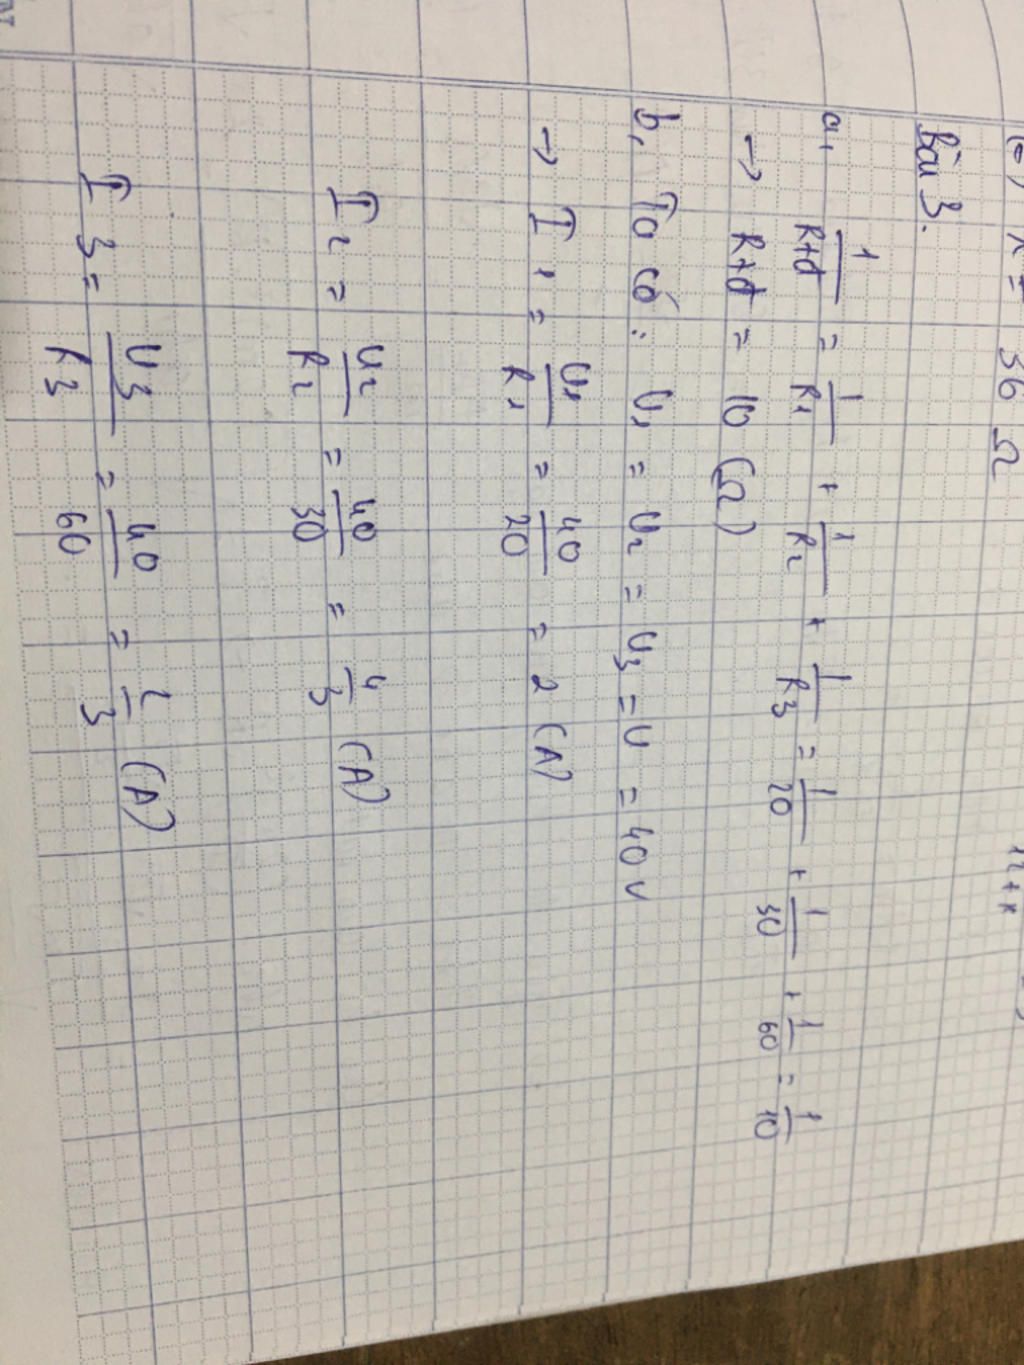 c) R = 36 Ω
Bài 3.
a, 1/Rtđ = 1/R1 + 1/R2 + 1/R3 = 1/20 + 1/30 + 1/60 = 1/10
→ Rtđ = 10 (Ω)
b, Ta có: U1 = U2 = U3 = U = 40 V
→ I1 = U1/R1 = 40/20 = 2 (A)
I2 = U2/R2 = 40/30 = 4/3 (A)
I3 = U3/R3 = 40/60 = 2/3 (A)